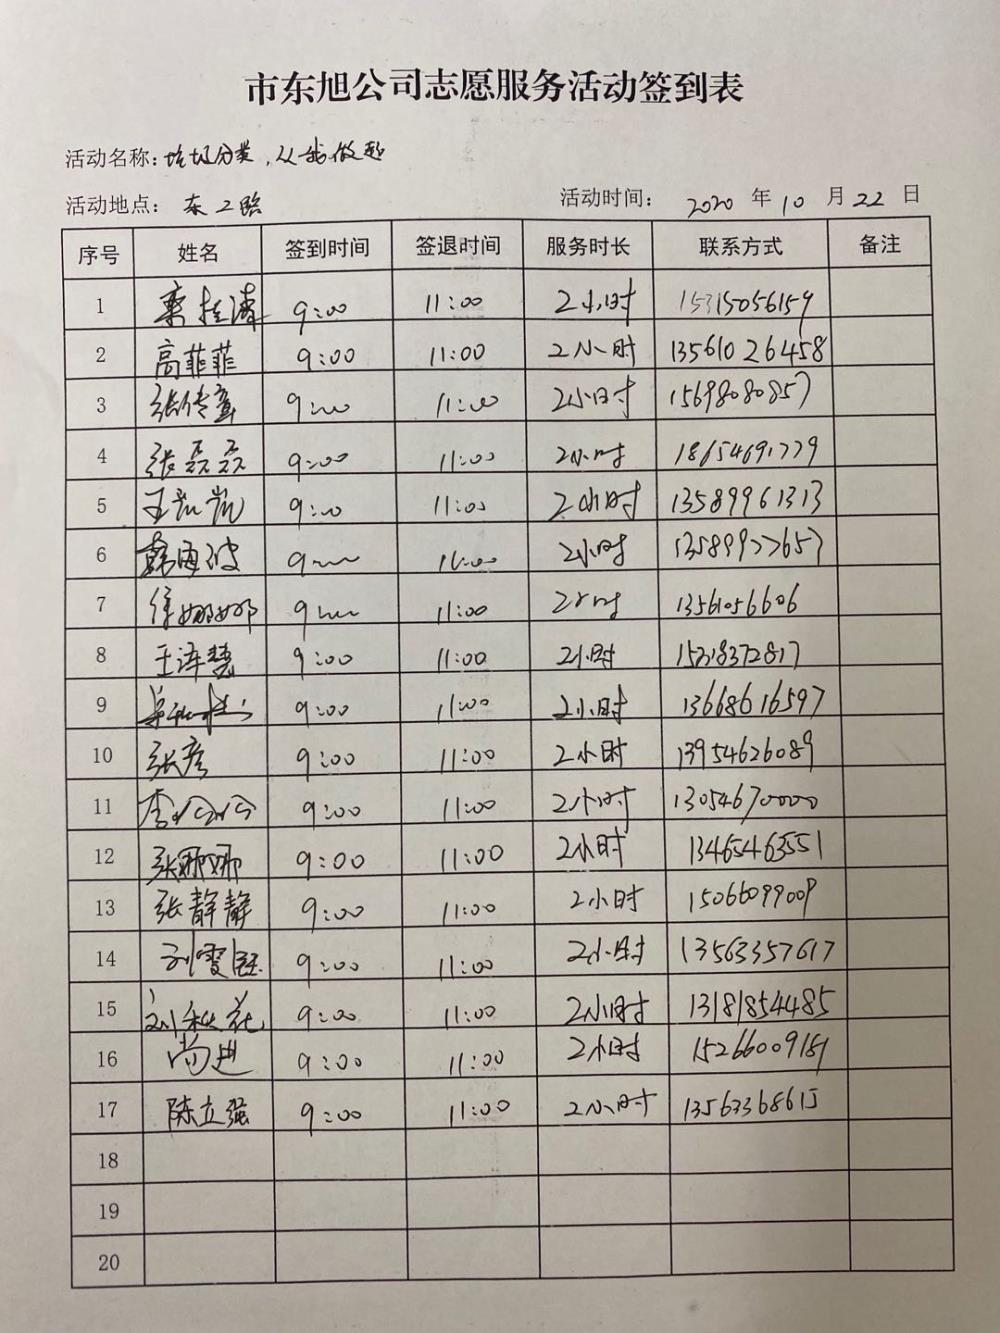 市东旭公司志愿服务活动签到表
活动名称: 垃圾分类,从我做起
活动地点: 东二路 活动时间: 2020 年 10 月 22 日
序号 姓名 签到时间 签退时间 服务时长 联系方式 备注
1 9:00 11:00 2小时 15315056159
2 高菲菲 9:00 11:00 2小时 13561026458
3 张传 9:00 11:00 2小时 15698080857
4 张磊磊 9:00 11:00 2小时 18654691779
5 王凯凯 9:00 11:00 2小时 13589961313
6 韩海波 9:00 11:00 2小时 13589977657
7 徐娜娜 9:00 11:00 2小时 13561056606
8 王泽慧 9:00 11:00 2小时 15318372817
9 9:00 11:00 2小时 13668616597
10 张彦 9:00 11:00 2小时 13954626089
11 李 9:00 11:00 2小时 13054670000
12 张娜娜 9:00 11:00 2小时 13465463551
13 张静静 9:00 11:00 2小时 15066099009
14 刘雯 9:00 11:00 2小时 13563357617
15 刘秋花 9:00 11:00 2小时 13181854485
16 尚进 9:00 11:00 2小时 15266009151
17 陈立强 9:00 11:00 2小时 13563368615
18
19
20